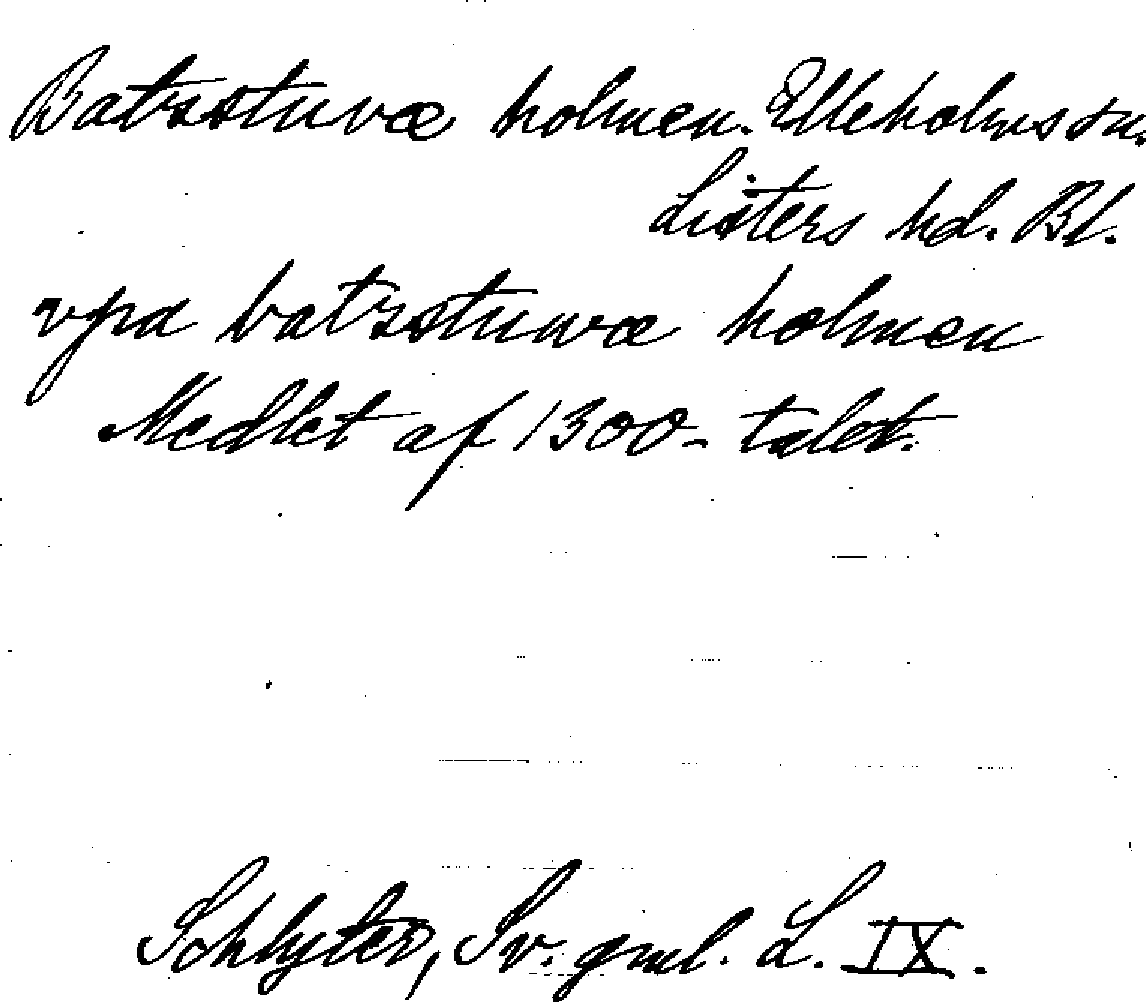 Batzstuvæ holmen. Elleholms sn.
Listers hd. Bl.
vpa batzstuwæ holmen
Medlet af 1300-talet.
Schlyter, Sv. gml. L. IX.